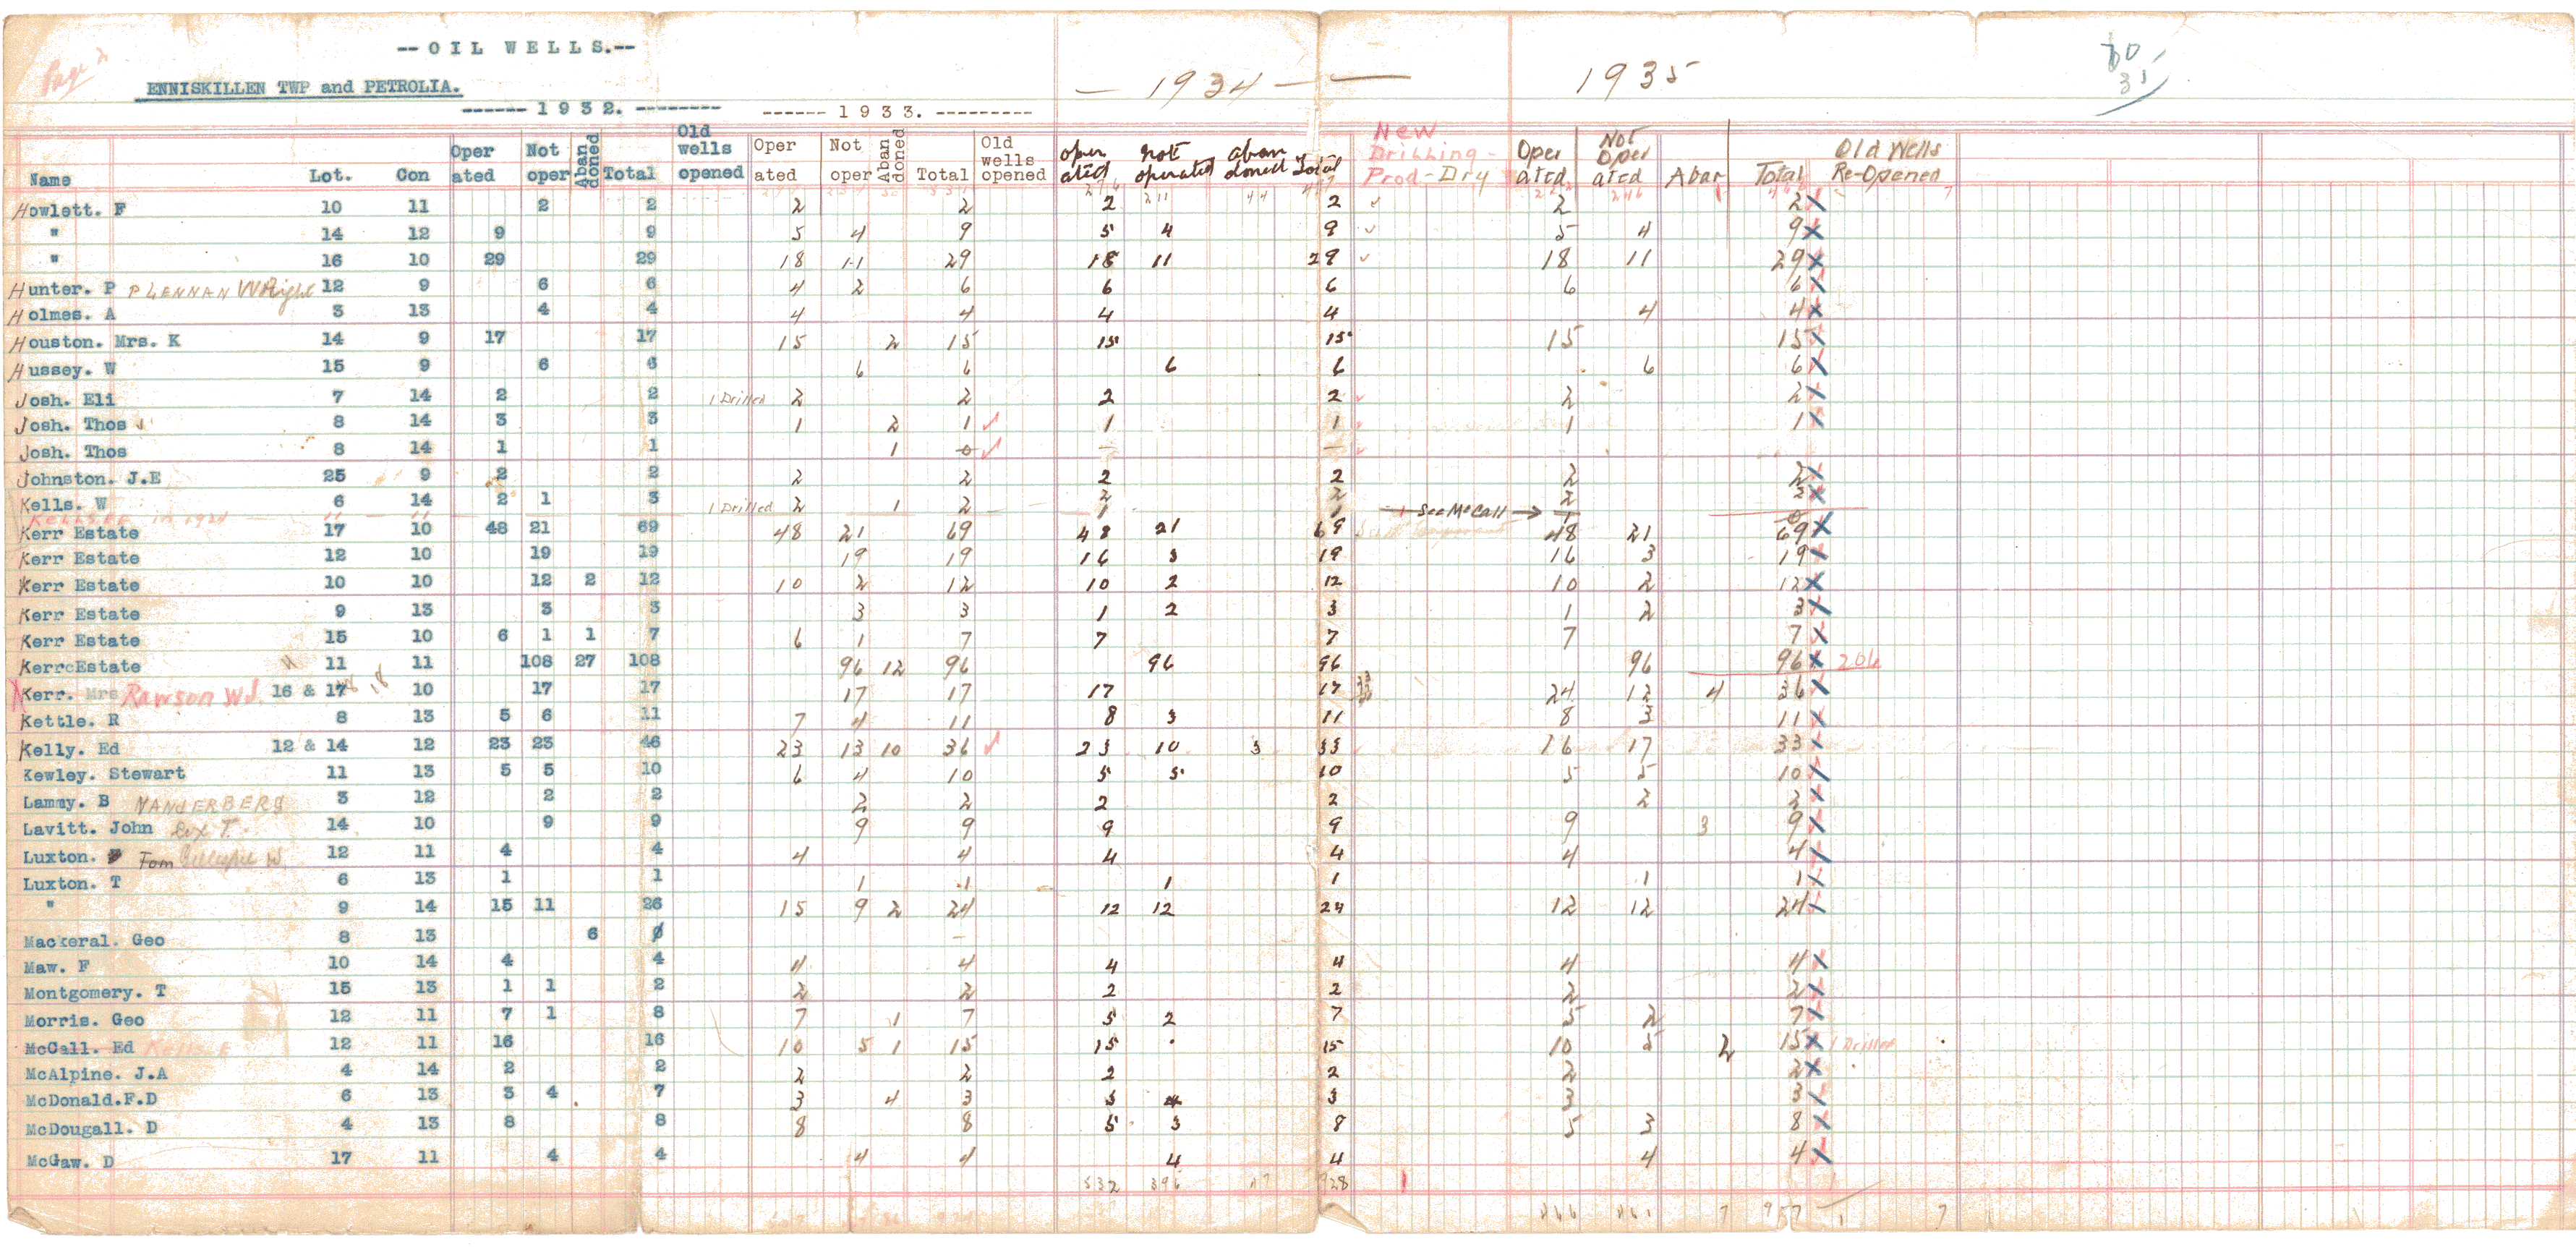 Page 2
--OIL WELLS.--
ENNISKILLEN TWP and PETROLIA.
------ 1932. -------- ------ 1933. --------- — 1934 — — 1935
Name Lot. Con Oper ated Not oper Aban doned Total Old wells opened Oper ated Not oper Aban doned Total Old wells opened oper ated not operated aban doned Total New Drilling - Prod - Dry Oper ated Not Oper ated Aban Total Old Wells Re-Opened
Howlett. F 10 11 2 2 2 2 2 2 2 2
" 14 12 9 9 5 4 9 5 4 9 5 4 9
" 16 10 29 29 18 11 29 18 11 29 18 11 29
Hunter. P P LENNAN WRight 12 9 6 6 4 2 6 6 6 6 6
Holmes. A 3 13 4 4 4 4 4 4 4 4
Houston. Mrs. K 14 9 17 17 15 2 15 15 15 15 15
Hussey. W 15 9 6 6 6 6 6 6 6 6
Josh. Eli 7 14 2 2 1 Drilled 2 2 2 2 2 2
Josh. Thos 8 14 3 3 1 2 1 1 1 1 1
Josh. Thos 8 14 1 1 1 0 — —
Johnston. J.E 25 9 2 2 2 2 2 2 2 2
Kells. W 6 14 2 1 3 1 Drilled 2 1 2 2 2 2 2
in 1934 — " — " 1 1 1 See McCall → 1 0
Kerr Estate 17 10 48 21 69 48 21 69 48 21 69 48 21 69
Kerr Estate 12 10 19 19 19 19 16 3 19 16 3 19
Kerr Estate 10 10 12 2 12 10 2 12 10 2 12 10 2 12
Kerr Estate 9 13 3 3 3 3 1 2 3 1 2 3
Kerr Estate 15 10 6 1 1 7 6 1 7 7 7 7 7
KerrcEstate 11 11 108 27 108 96 12 96 96 96 96 96 206
Kerr. Mrs Rawson WJ. 16 & 17 10 17 17 17 17 17 17 24 12 4 36
Kettle. R 8 13 5 6 11 7 4 11 8 3 11 8 3 11
Kelly. Ed 12 & 14 12 23 23 46 23 13 10 36 23 10 3 33 16 17 33
Kewley. Stewart 11 13 5 5 10 6 4 10 5 5 10 5 5 10
Lammy. B VANDERBERG 3 12 2 2 2 2 2 2 2 2
Lavitt. John 14 10 9 9 9 9 9 9 9 3 9
Luxton. Tom Gillespie W. 12 11 4 4 4 4 4 4 4 4
Luxton. T 6 13 1 1 1 1 1 1 1 1
" 9 14 15 11 26 15 9 2 24 12 12 24 12 12 24
Mackeral. Geo 8 13 6 0 —
Maw. F 10 14 4 4 4 4 4 4 4 4
Montgomery. T 15 13 1 1 2 2 2 2 2 2 2
Morris. Geo 12 11 7 1 8 7 1 7 5 2 7 5 2 7
McCall. Ed 12 11 16 16 10 5 1 15 15 15 10 5 2 15 1 Drilled
McAlpine. J.A 4 14 2 2 2 2 2 2 2 2
McDonald.F.D 6 13 3 4 7 3 4 3 3 4 3 3 3
McDougall. D 4 13 8 8 8 8 5 3 8 5 3 8
McGaw. D 17 11 4 4 4 4 4 4 4 4
532 396 47 928 1
466 461 7 957 1 7